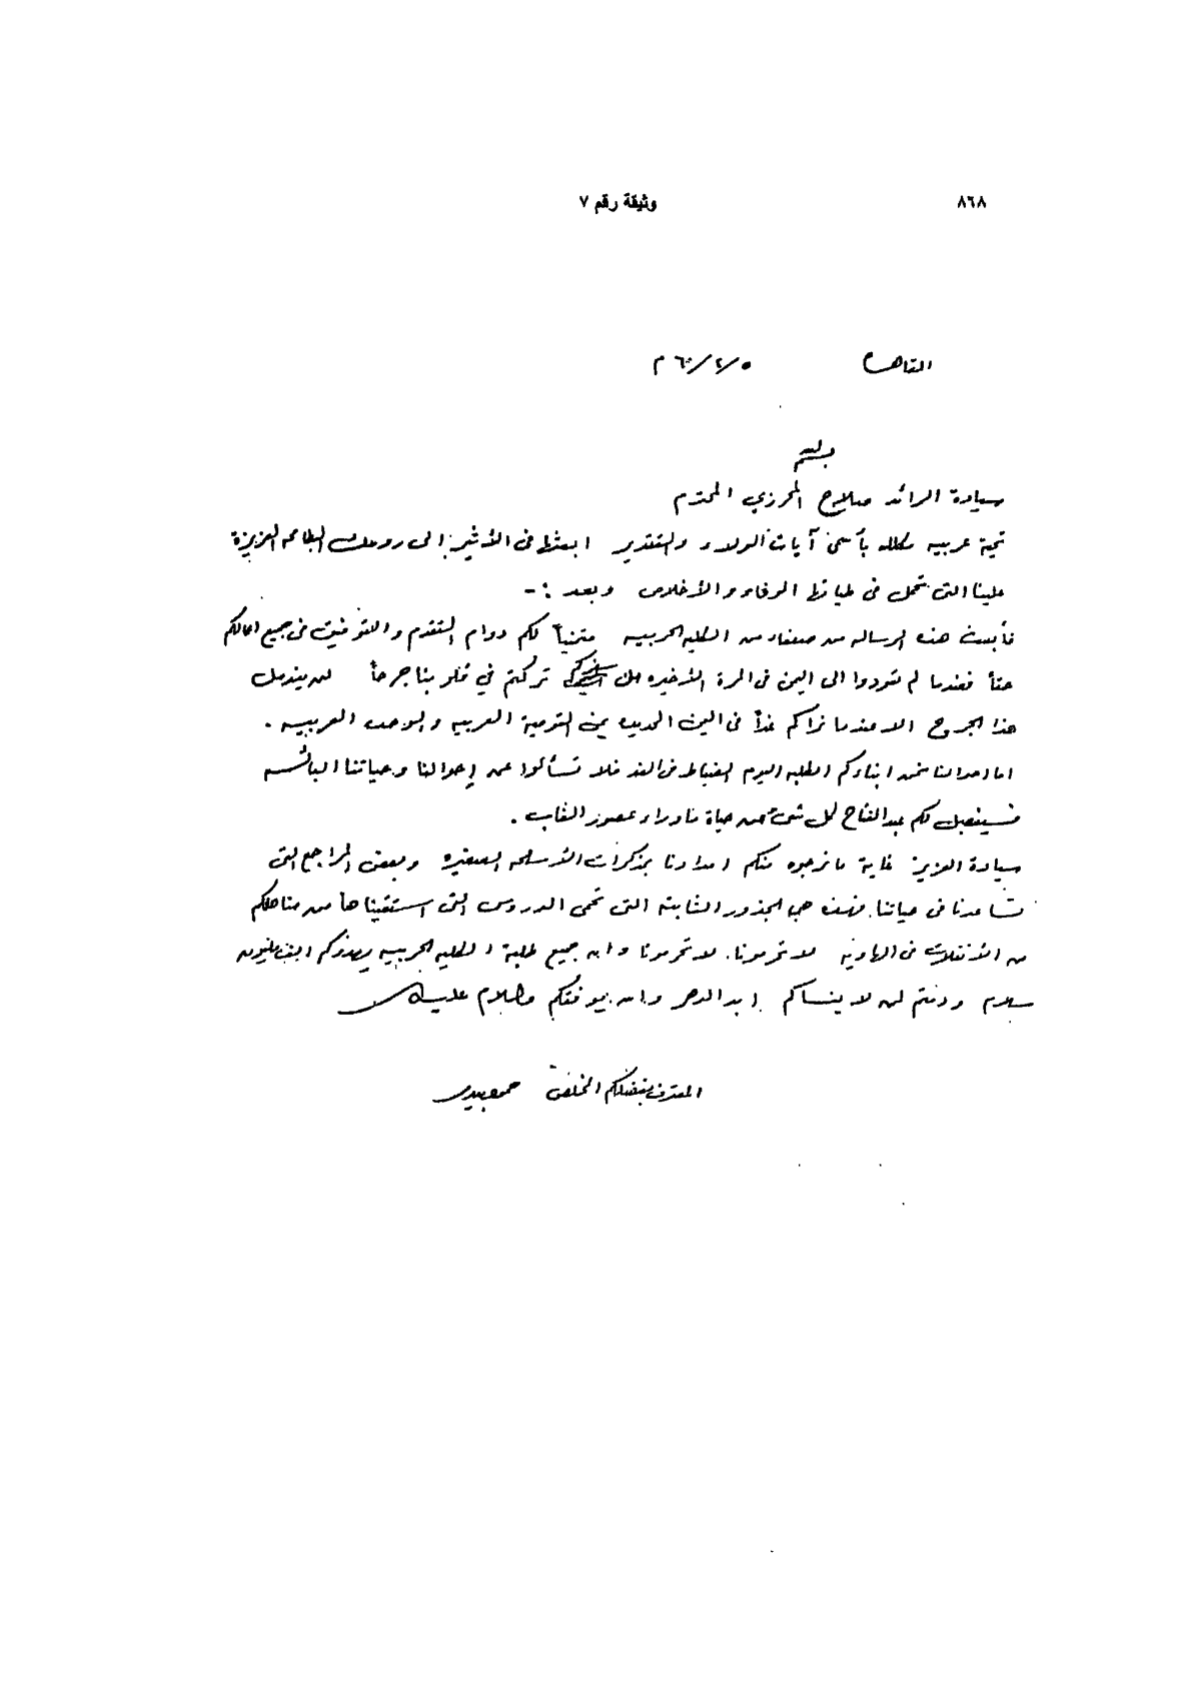 ٨٦٨
وثيقة رقم ٧
القاهرة ٥/٢/٦٠ م
سيادة الرائد صلاح المحرزي المحترم
تحية عربيه مكلله بأسمى آيات الولاء والتقدير ابعثها فى الأثير الى روحك الطاهره العزيزة
علينا التى تحمل فى طياتها الوفاء والأخلاص وبعد :-
فأبعث هذه الرساله من صنعاء من الكليه الحربيه متمنياً لكم دوام التقدم والتوفيق فى جميع اعمالكم
حقاً فعندما لم تعودوا الى اليمن فى المرة الأخيره تركتم في قلوبنا جرحاً لن يندمل
هذا الجرح الا عندما نراكم غداً فى اليمن الجديده يمن القومية العربيه والوحده العربيه .
اما احوالنا نحن ابناؤكم الطلبه اليوم الضباط فى الغد فلا تسألوا عن احوالنا وحياتنا البائسه
فسيفصل لكم عبدالفتاح كل شىء عن حياة ما وراء عصور الغاب .
سيادة العزيز غاية ما نرجوه منكم امدادنا بمذكرات الأسلحه الصغيره وبعض المراجع التى
تساعدنا فى حياتنا فهذه هى الجذور الثابته التى تحمى الدروس التى استقيناها من مناهلكم
من الأنفلات فى الهاويه لا تحرمونا. لا تحرمونا وان جميع طلبة الكليه الحربيه يهدوكم الف مليون
سلام ودمتم لمن لا ينساكم ابد الدهر والله يوفقكم والسلام عليكم
المعترف بفضلكم المخلص